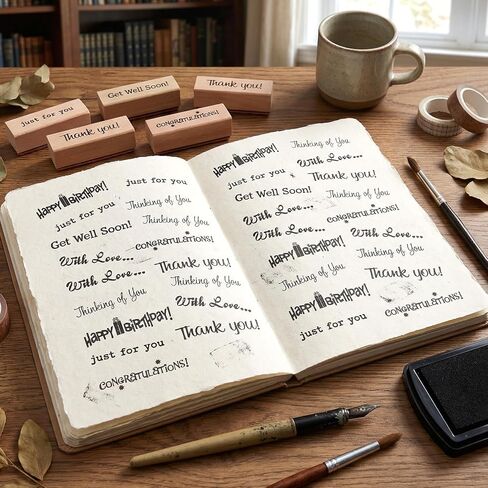 Get Well Soon!
Thank you!
just for you
Thank you!
CONGRATULATIONS!
HAPPY BIRTHDAY!
just for you
just for you
Thinking of You
Get Well Soon!
Thinking of You
With Love...
CONGRATULATIONS!
With Love...
Thank you!
Thinking of You
Thinking of You
With Love...
HAPPY BIRTHDAY!
Thank you!
just for you
CONGRATULATIONS!
HAPPY BIRTHDAY!
Thinking of You
With Love...
just for you
Thank you!
Get Well Soon!
Thinking of You
With Love...
CONGRATULATIONS!
With Love...
With Love...
HAPPY BIRTHDAY!
Thank you!
Thinking of You
HAPPY BIRTHDAY!
CONGRATULATIONS!
just for you